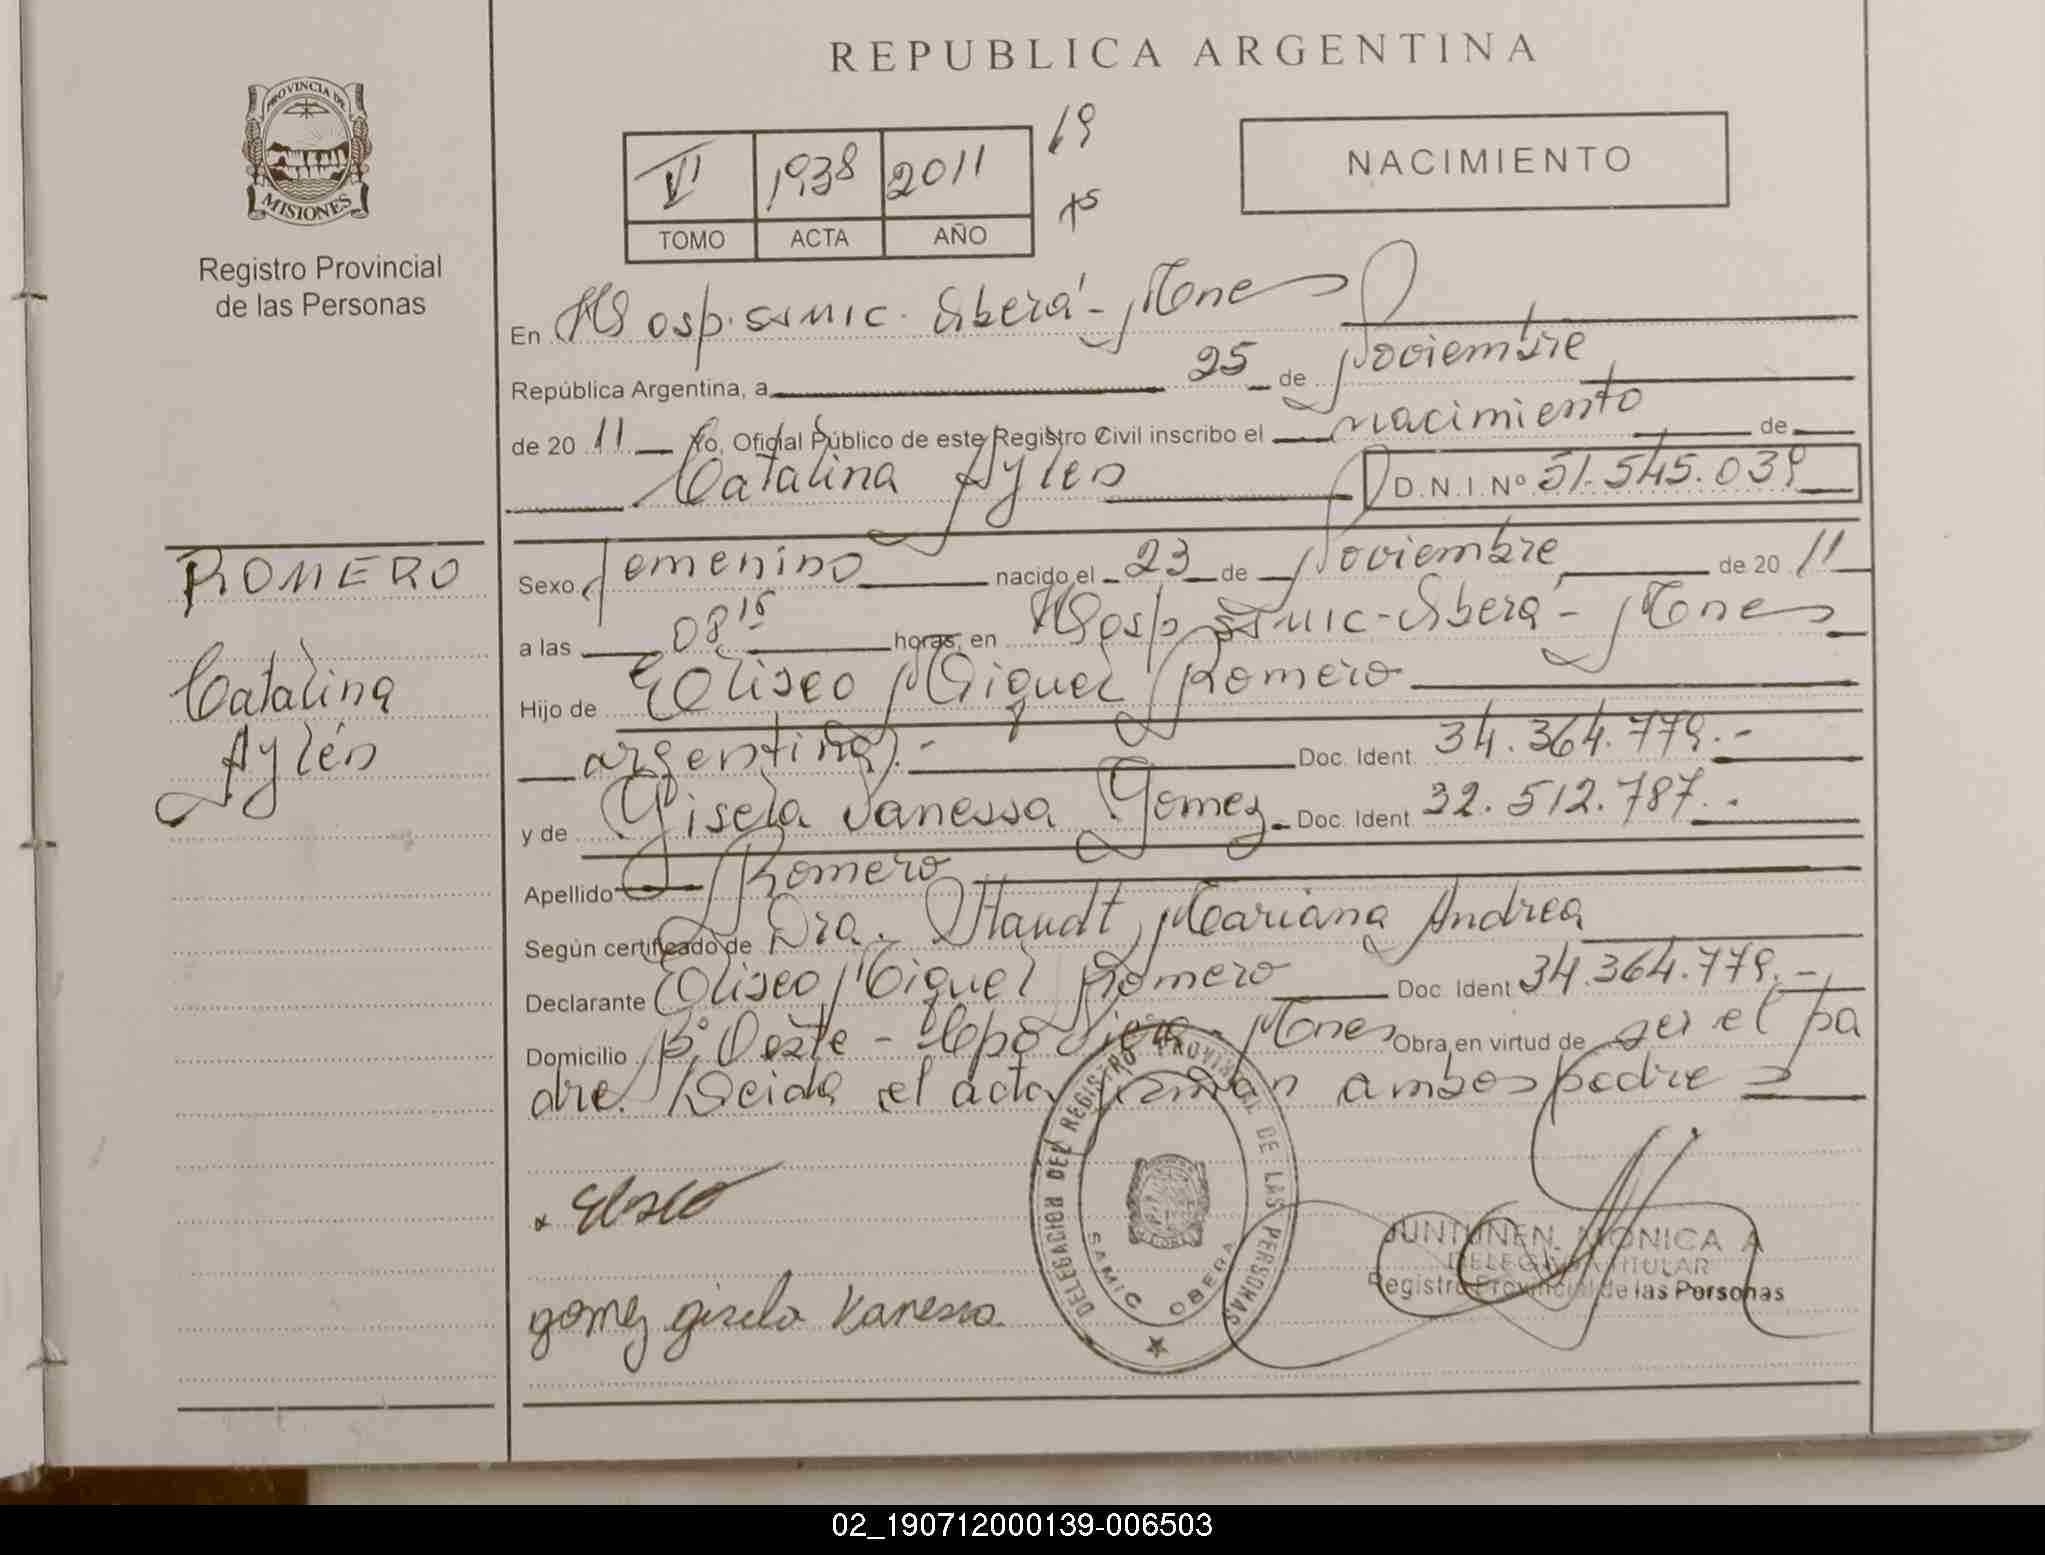 REPUBLICA ARGENTINA
PROVINCIA DE
MISIONES
Registro Provincial
de las Personas
VI 1938 2011
TOMO ACTA AÑO
19
NACIMIENTO
En Hosp. SAMIC. Oberá - Mnes
República Argentina, a 25 de Noviembre
de 20 11 Yo, Oficial Público de este Registro Civil inscribo el nacimiento de
Catalina Aylén D.N.I. Nº 51.545.039
ROMERO
Catalina
Aylén
Sexo femenino nacido el 23 de Noviembre de 20 11
a las 08 15 horas, en Hosp SAMIC - Oberá - Mnes
Hijo de Eliseo Miguel Romero
argentina.- Doc. Ident. 34.364.779.-
y de Gisela Vanessa Gomez Doc. Ident 32.512.787.-
Apellido Romero
Según certificado de Dra. Staudt, Mariana Andrea
Declarante Eliseo Miguel Romero Doc. Ident 34.364.779.-
Domicilio Bº Oeste - Cpo Viera - Mnes Obra en virtud de ser el pa
dre. Leida el acta firman ambos padres
Eliseo
gomez gisela Vanessa
DELEGACION DEL REGISTRO PROVINCIAL DE LAS PERSONAS
SAMIC OBERA
JUNTUNEN, MONICA A
DELEGADA TITULAR
Registro Provincial de las Personas
02_190712000139-006503